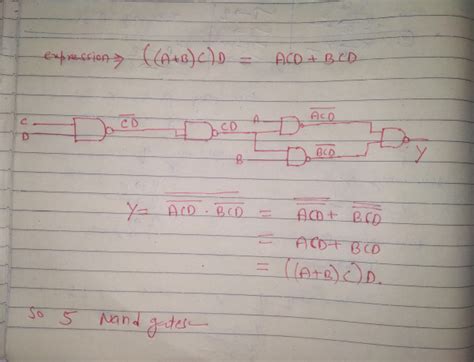 expression ⇒ ((A+B)C)D = ACD + BCD
C
D
C̅D̅
CD
A
A̅C̅D̅
B
B̅C̅D̅
Y
Y = \overline{\overline{ACD} · \overline{BCD}} = \overline{\overline{ACD}} + \overline{\overline{BCD}}
= ACD + BCD
= ((A+B)C)D.
So 5 Nand gates